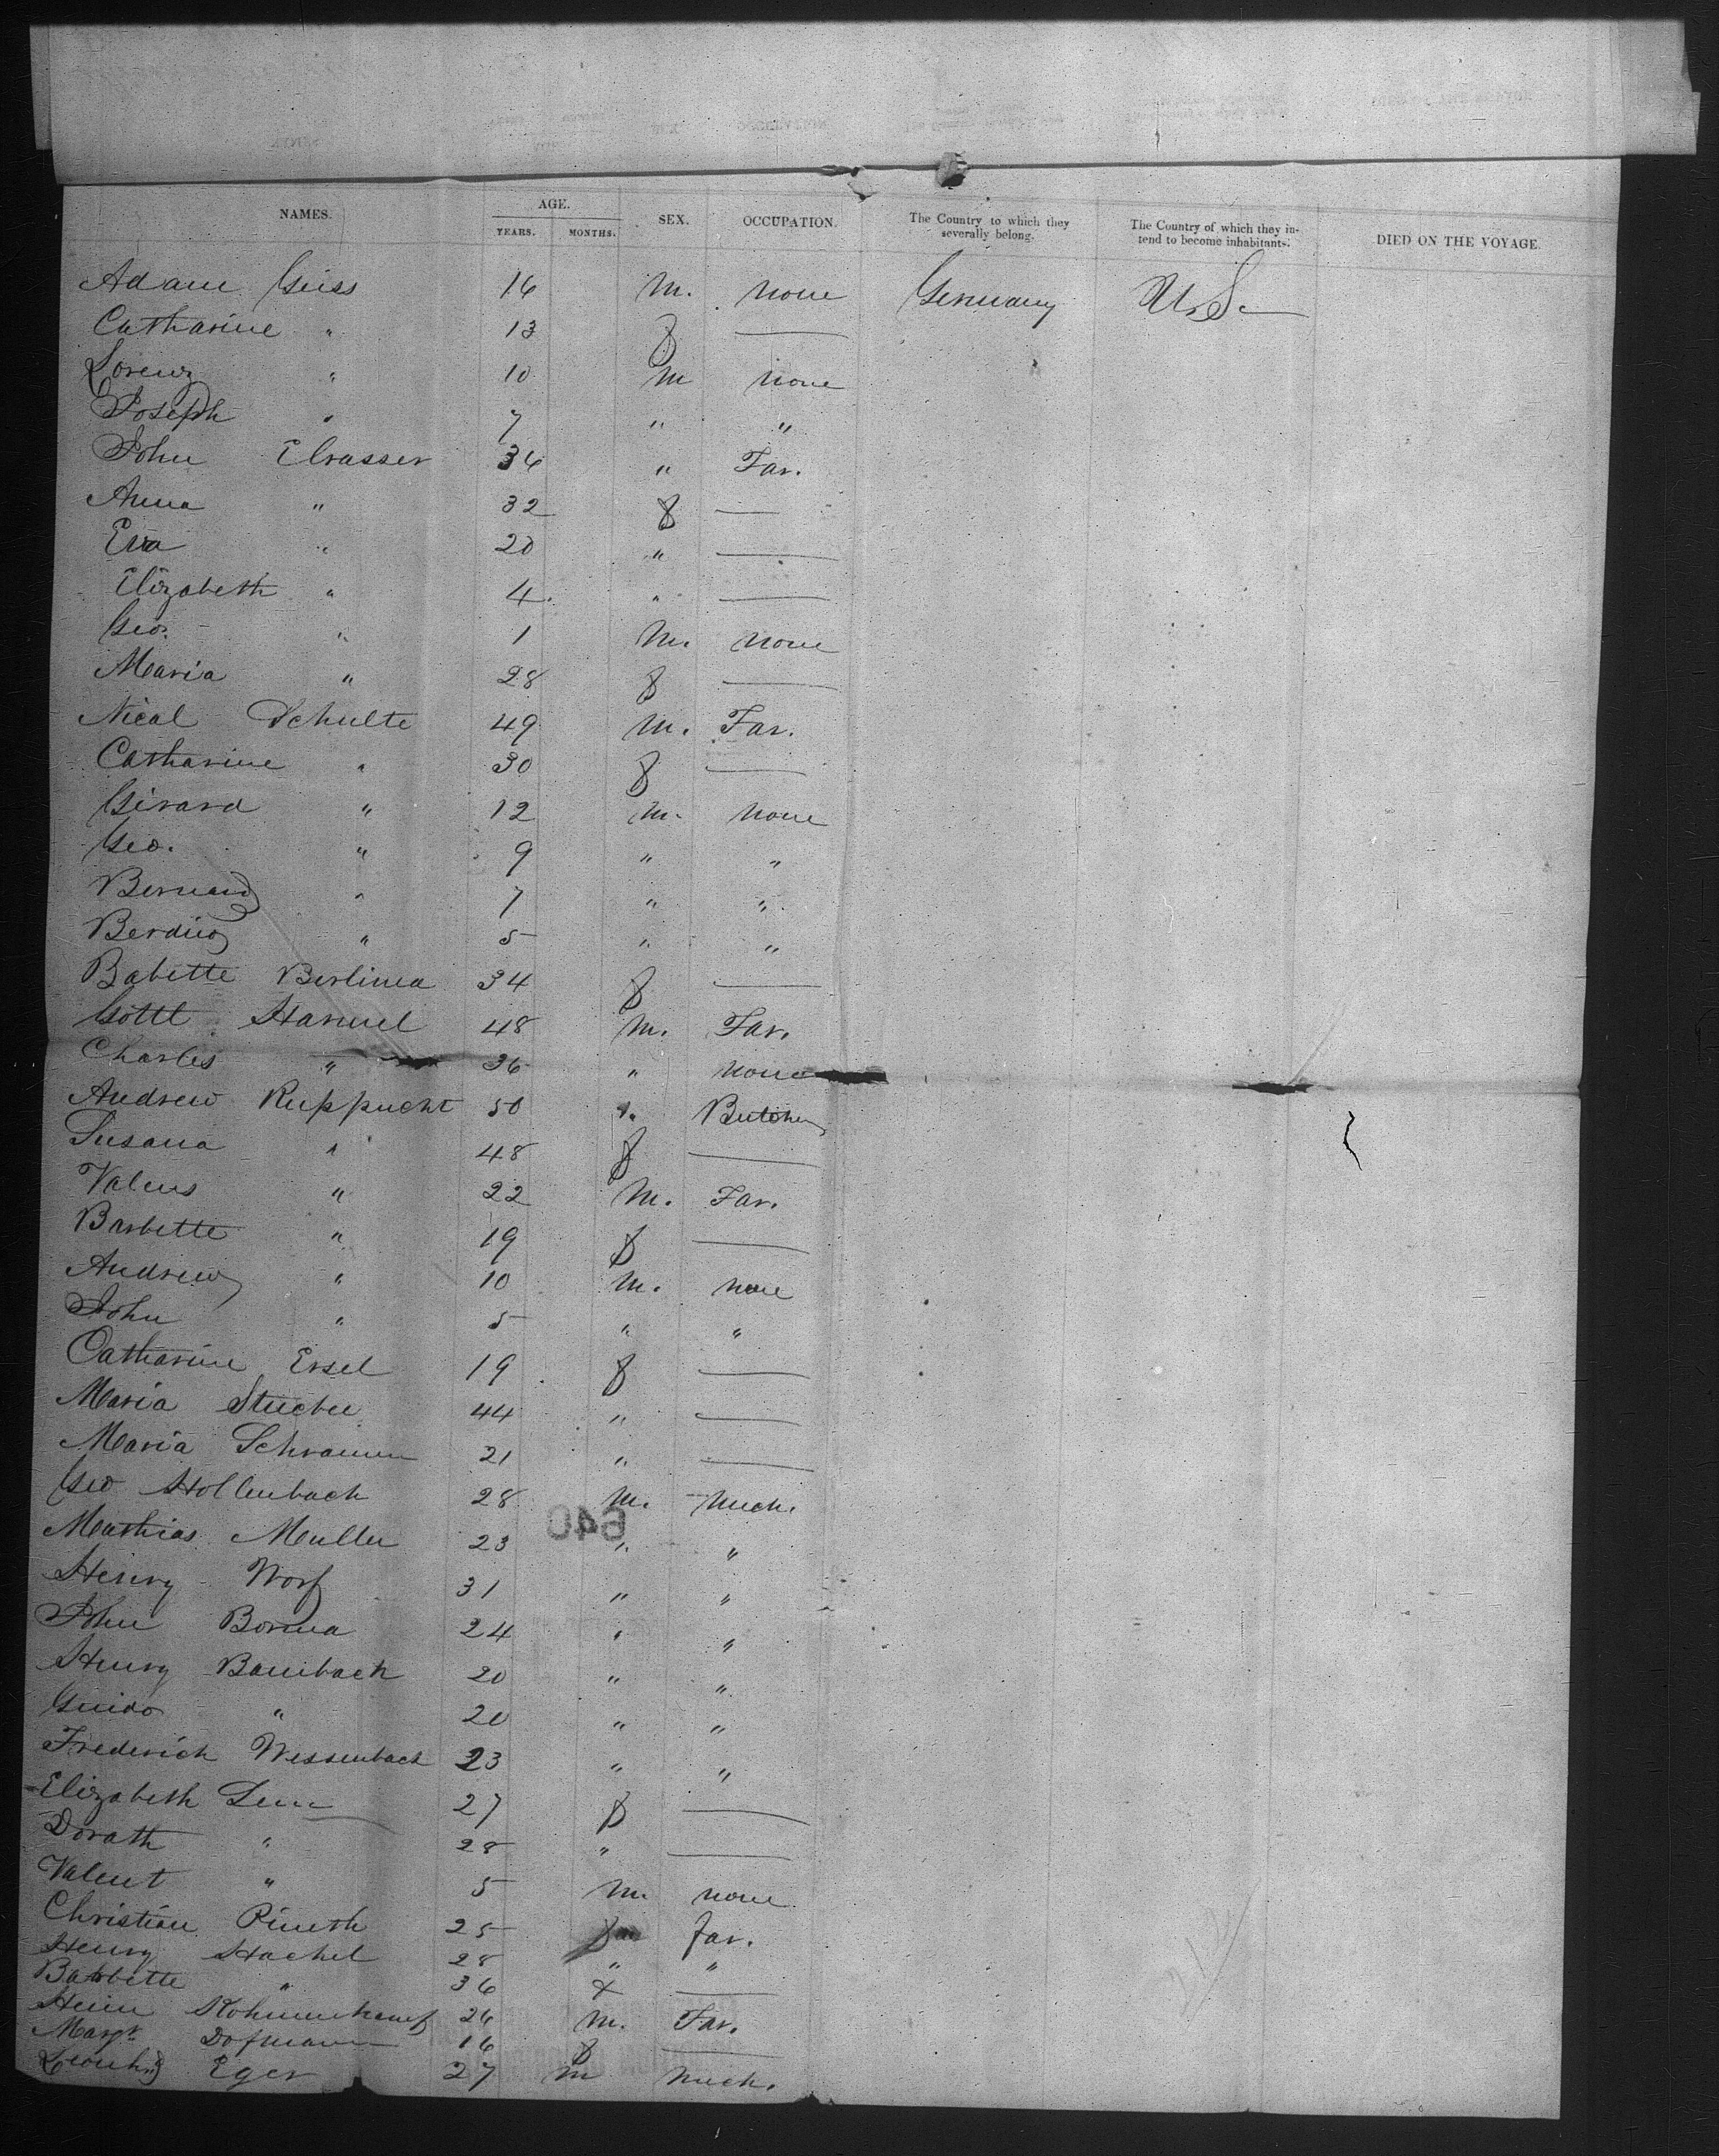 NAMES. AGE. SEX. OCCUPATION. The Country to which they severally belong. The Country of which they intend to become inhabitants. DIED ON THE VOYAGE.
YEARS. MONTHS.
Adam Geiss 16 M. none Germany U.S.
Catharine " 13 f —
Lorenz " 10 M none
Joseph " 7 " "
John Elsasser 36 " Far.
Anna " 32 f —
Eva " 20 " —
Elizabeth " 4 " —
Geo. " 1 M. none
Maria " 28 f —
Nicol Schulte 49 M. Far.
Catharine " 30 f —
Girard " 12 M. none
Geo. " 9 " "
Bernard " 7 " "
" 5 " "
Babette Berlinea 34 f —
Gottl Harmel 48 M. Far.
Charles " 36 " none
Andrew Ruppucht 50 " Butcher
Susana " 48 f —
Valens " 22 M. Far.
Barbette " 19 f —
Andrew " 10 M. none
John " 5 " "
Catharine Ersel 19 f —
Maria 44 " —
Maria Schramm 21 " —
Geo Hollenbach 28 M. Mech.
640
Mathias Muller 23 " "
Henry Worf 31 " "
John 24 " "
Henry Baumbach 20 " "
Guido " 20 " "
Frederich Wessenbach 23 " "
Elizabeth 27 f —
Dorath " 28 " —
Valent " 5 M. none
Christian 25 far.
Henry Hachel 28 " "
Babbette " 36 f —
26 M. Far.
Margt Dofmann 16 f —
Eger 27 M Mech.